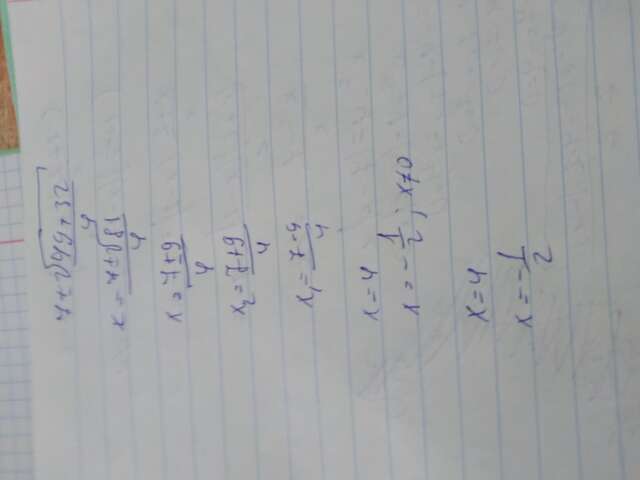 7+√49+32 / 4
x = 7+√81 / 4
x = 7+9 / 4
x₂ = 7+9 / 4
x₁ = 7-9 / 4
x = 4
x = -1/2 ; x≠0
x = 4
x = -1/2